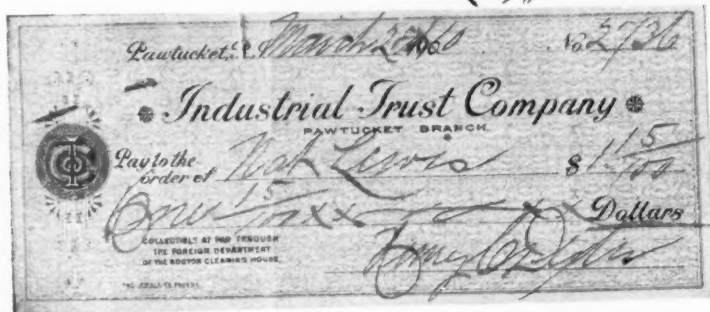 Pawtucket, R. I. March 28 1910 No. 2736
Industrial Trust Company
PAWTUCKET BRANCH.
Pay to the order of Nat Lewis $ 1 15/100
One 15/100 xx Dollars
COLLECTIBLE AT PAR THROUGH
THE FOREIGN DEPARTMENT
OF THE BOSTON CLEARING HOUSE